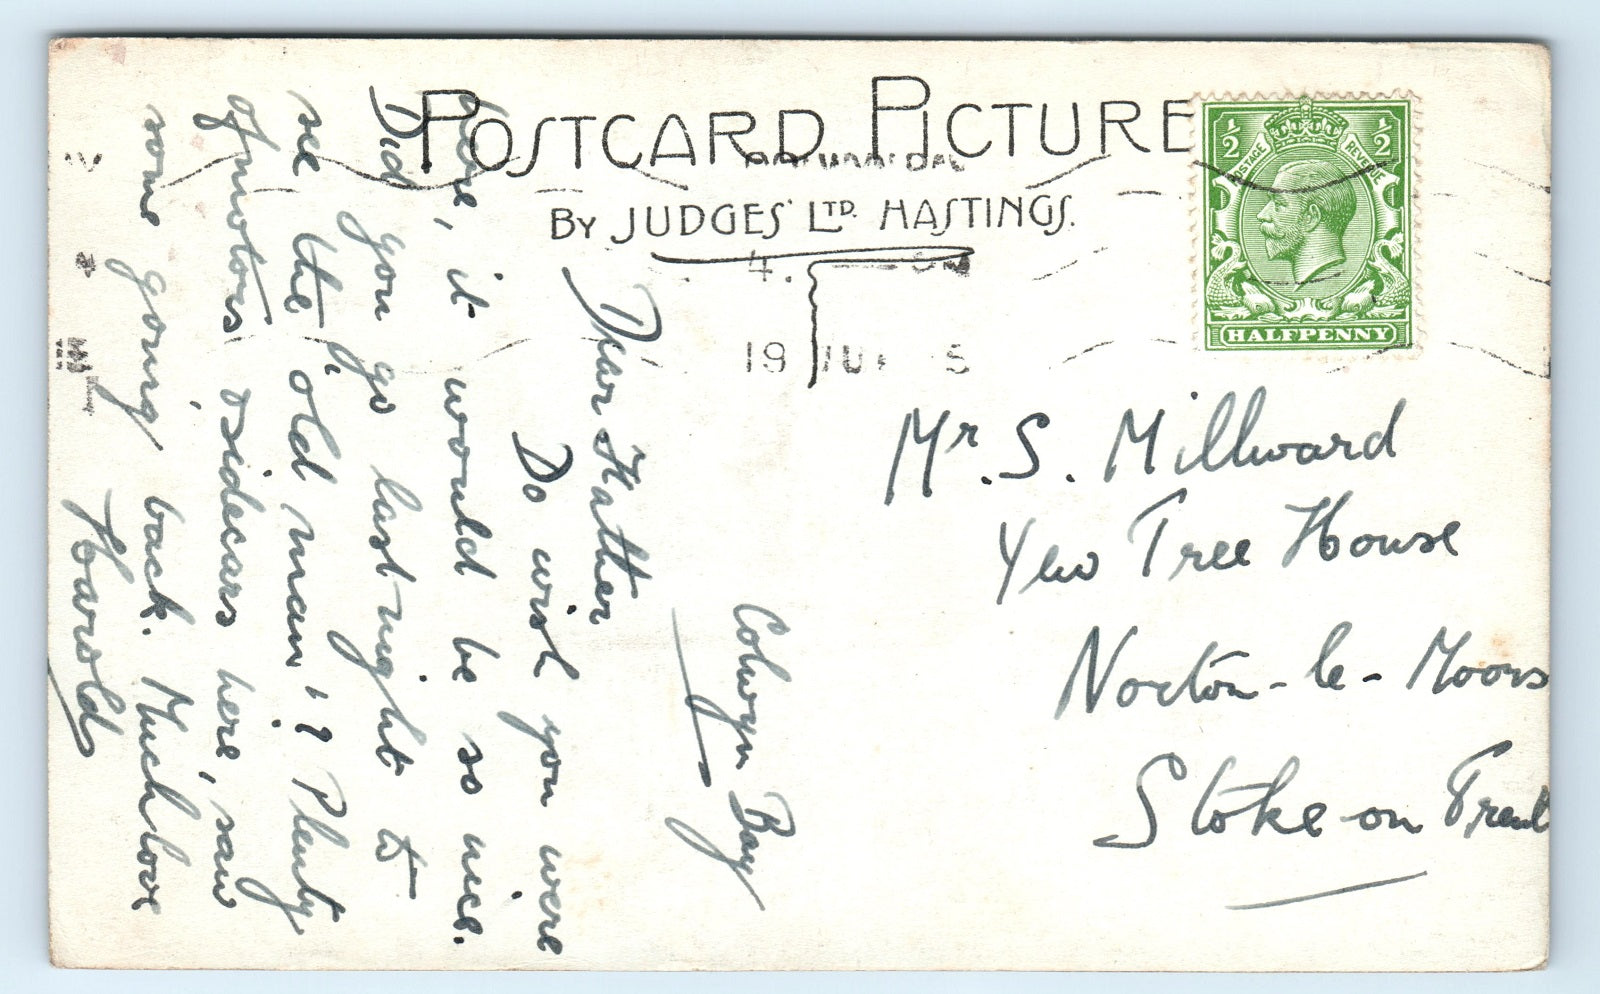 POSTCARD PICTURE
BY JUDGES' LTD. HASTINGS.
POSTAGE REVENUE
½ ½
HALFPENNY
4.
19
Mr. S. Millward
Yew Tree House
Norton-le-Moors
Stoke-on Trent
Colwyn Bay
Dear Father
Do wish you were
here, it would be so nice.
Did you go last night to
see the 'old man'? Plenty
of motors & sidecars here, saw
some going back. Much love
Harold